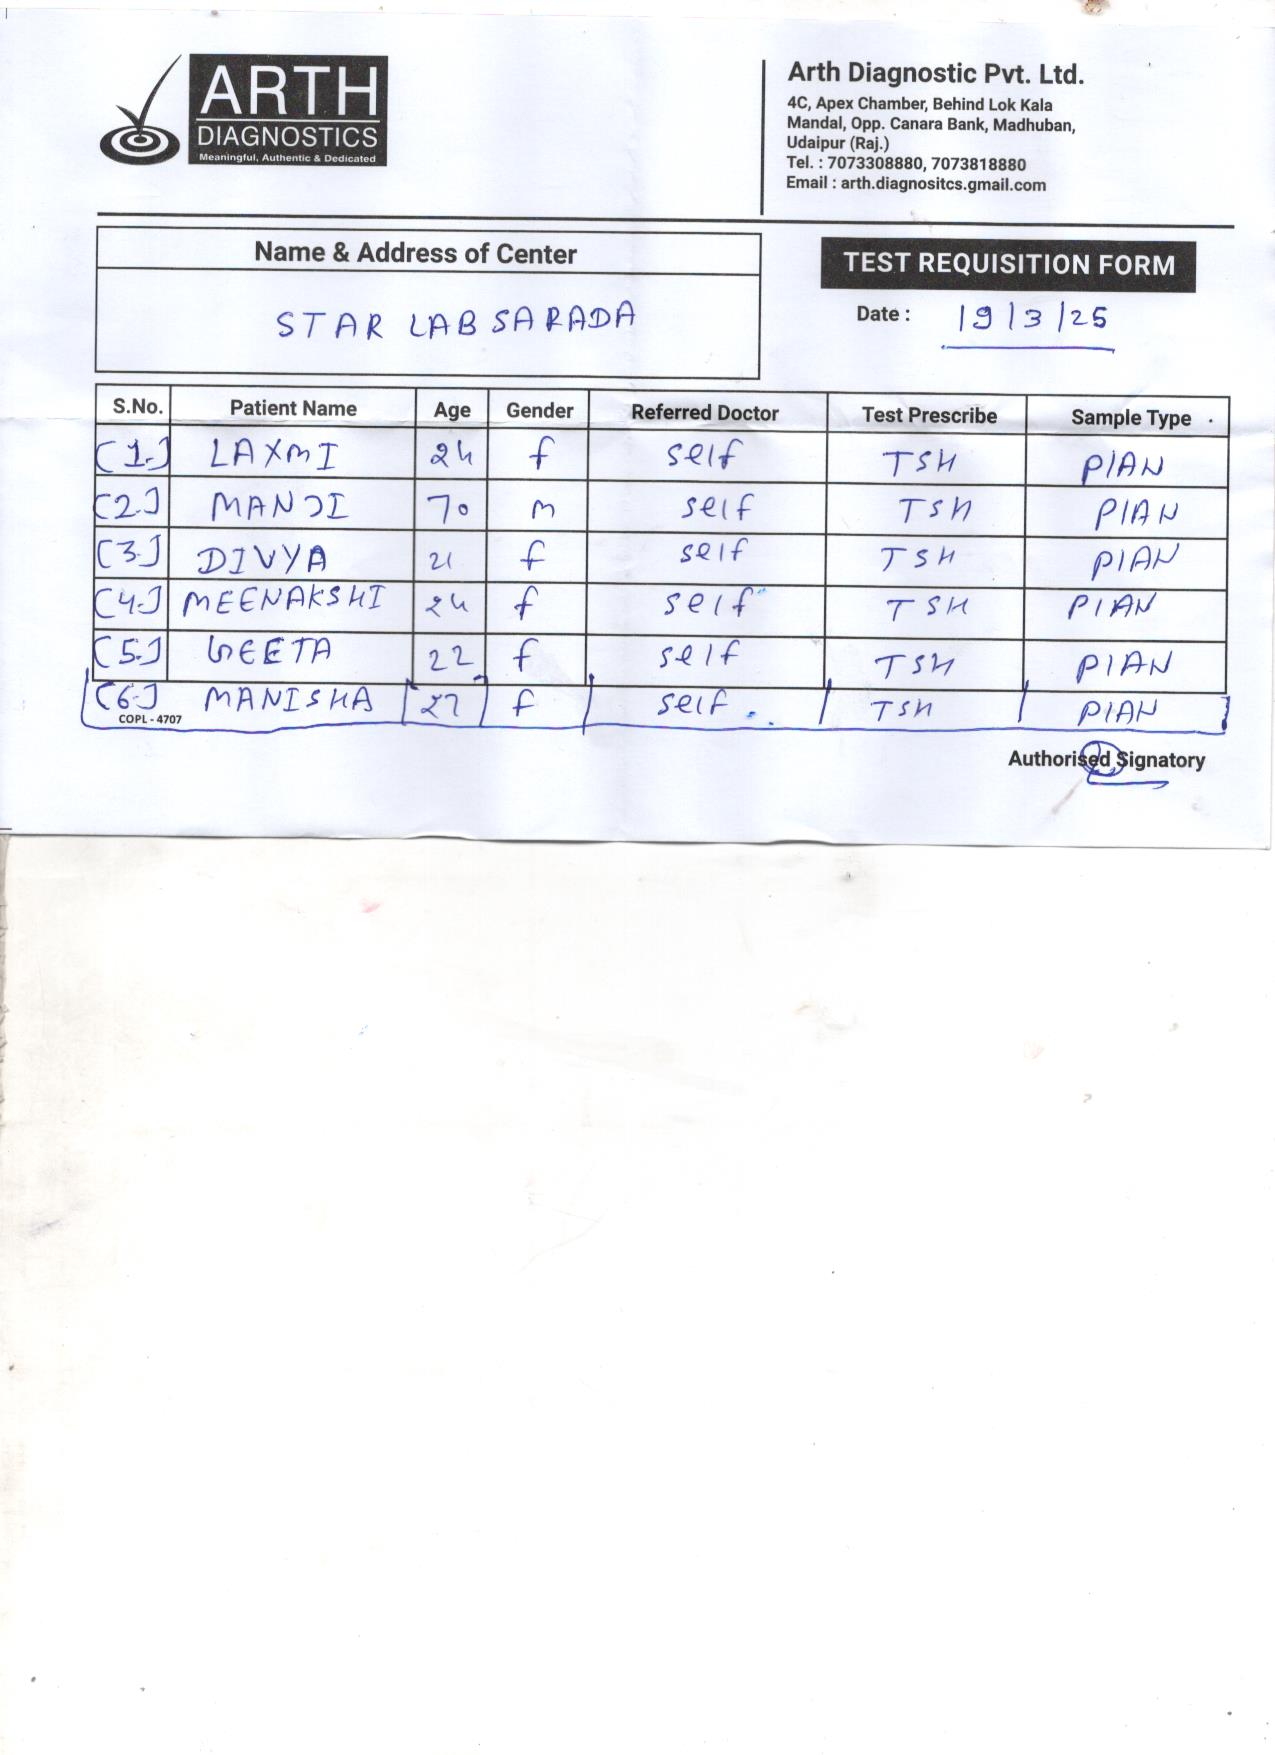 ARTH
DIAGNOSTICS
Meaningful, Authentic & Dedicated
Arth Diagnostic Pvt. Ltd.
4C, Apex Chamber, Behind Lok Kala
Mandal, Opp. Canara Bank, Madhuban,
Udaipur (Raj.)
Tel. : 7073308880, 7073818880
Email : arth.diagnositcs.gmail.com
Name & Address of Center
STAR LAB SARADA
TEST REQUISITION FORM
Date : 19/3/25
S.No. Patient Name Age Gender Referred Doctor Test Prescribe Sample Type
(1.) LAXMI 24 f self TSH PIAN
(2.) MANJI 70 m self TSH PIAN
(3.) DIVYA 21 f self TSH PIAN
(4.) MEENAKSHI 24 f self TSH PIAN
(5.) GEETA 22 f self TSH PIAN
(6.) MANISHA 27 f self TSH PIAN
COPL - 4707
Authorised Signatory